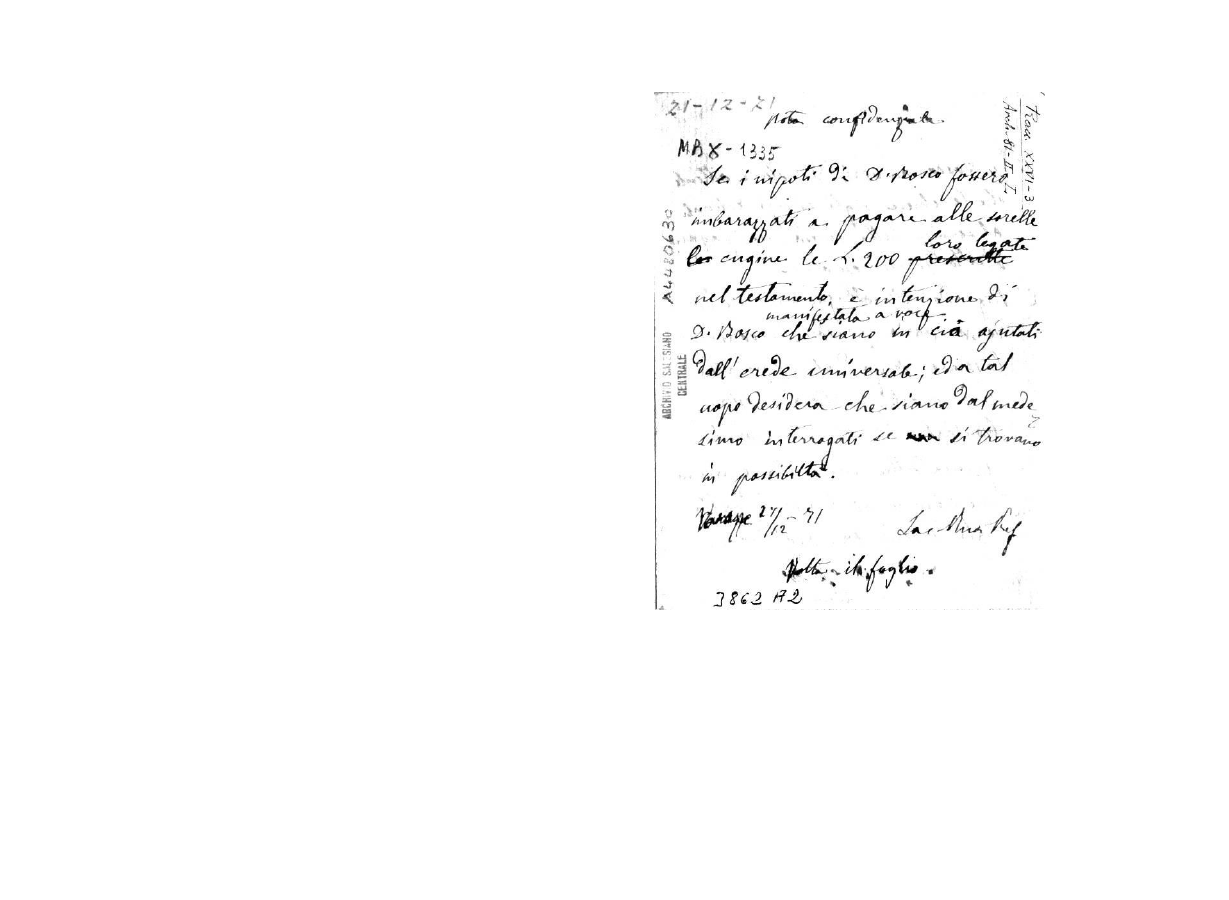 21-12-71
Nota confidenziale
MB X-1335
Se i nipoti di D. Bosco fossero
imbarazzati a pagare alle sorelle
loro legate
cugine le L. 200 prescritte
nel testamento, è intenzione di
manifestata a voce
D. Bosco che siano in ciò ajutati
dall'erede universale; ed a tal
uopo desidera che siano dal mede
simo interrogati se si trovano
in possibiltà.
Varazze 27/12 - 71
Sac. Rua Pref
Volta il foglio.
3862 A2
A4480630
ARCHIVIO SALESIANO
CENTRALE
XXVI-3